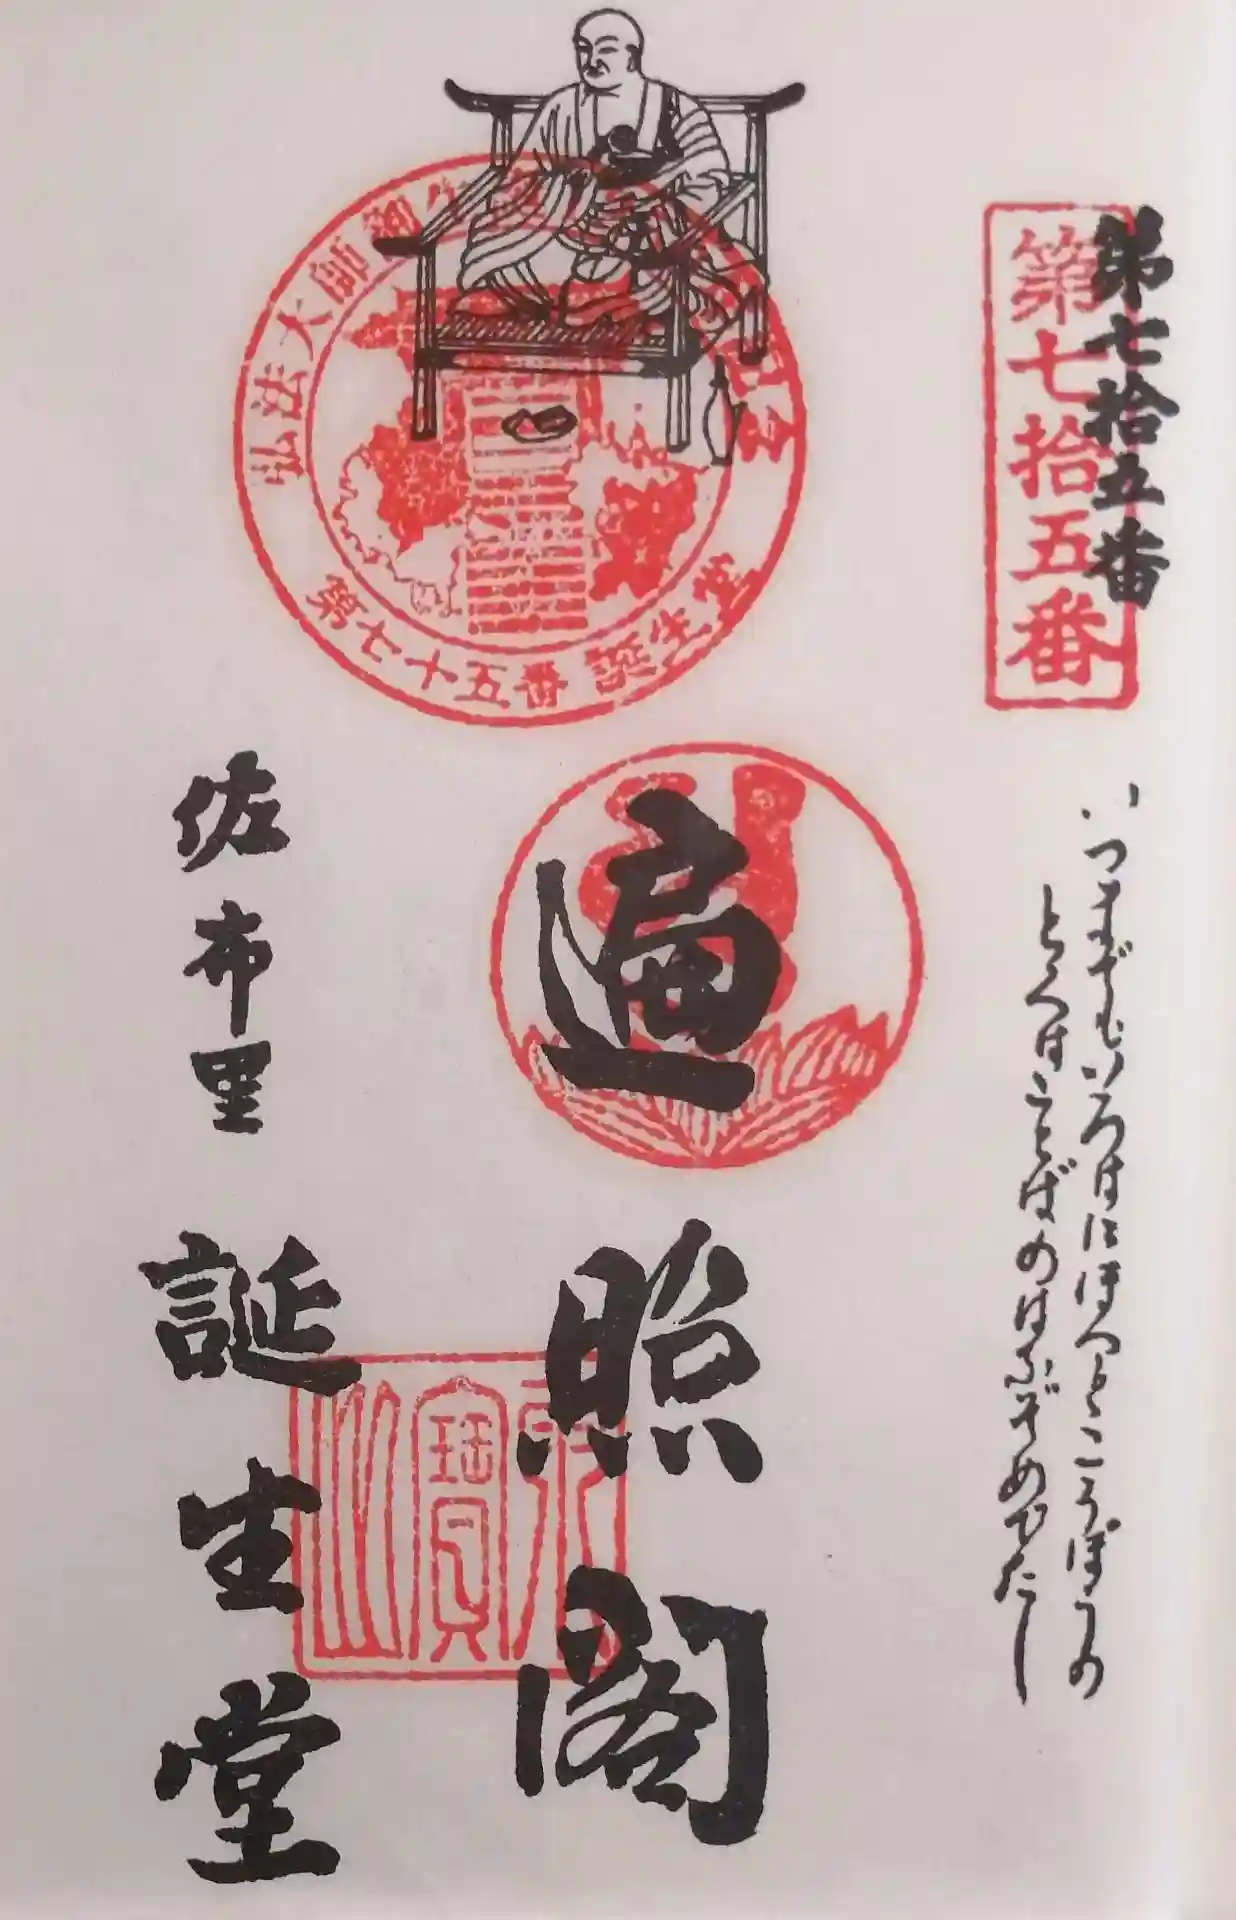 第七拾五番
第七拾五番
いつまでもいろはにほへとこうぼうの
とくはことばのはなぞめでたし
弘法大師御生
第七十五番 誕生堂
遍照閣
佐布里
誕生堂
寶